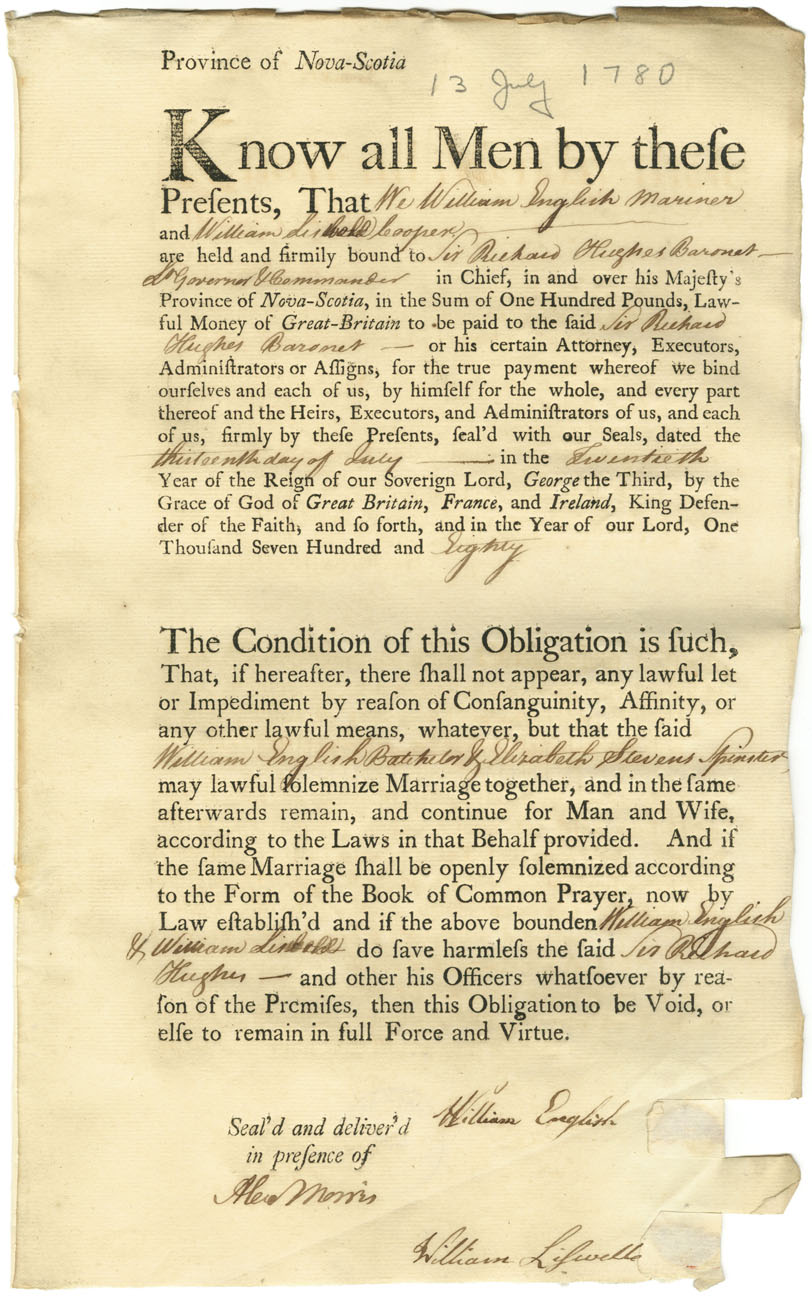 Province of Nova-Scotia
13 July 1780
Know all Men by theſe
Preſents, That We William English Mariner
and William Cooper
are held and firmily bound to Sir Richard Hughes Baronet —
Lt Governor & Commander in Chief, in and over his Majeſty's
Province of Nova-Scotia, in the Sum of One Hundred Pounds, Law-
ful Money of Great-Britain to be paid to the ſaid Sir Richard
Hughes Baronet — or his certain Attorney, Executors,
Adminiſtrators or Aſſigns, for the true payment whereof we bind
ourſelves and each of us, by himſelf for the whole, and every part
thereof and the Heirs, Executors, and Adminiſtrators of us, and each
of us, firmly by theſe Preſents, ſeal'd with our Seals, dated the
thirteenth day of July — in the Twentieth
Year of the Reign of our Soverign Lord, George the Third, by the
Grace of God of Great Britain, France, and Ireland, King Defen-
der of the Faith, and ſo forth, and in the Year of our Lord, One
Thouſand Seven Hundred and Eighty
The Condition of this Obligation is ſuch,
That, if hereafter, there ſhall not appear, any lawful let
or Impediment by reaſon of Conſanguinity, Affinity, or
any other lawful means, whatever, but that the ſaid
William English Batchelor & Elizabeth Stevens Spinster
may lawful ſolemnize Marriage together, and in the ſame
afterwards remain, and continue for Man and Wife,
according to the Laws in that Behalf provided. And if
the ſame Marriage ſhall be openly ſolemnized according
to the Form of the Book of Common Prayer, now by
Law eſtabliſh'd and if the above bounden William English
& William do ſave harmleſs the ſaid Sir Richard
Hughes — and other his Officers whatſoever by rea-
ſon of the Premiſes, then this Obligation to be Void, or
elſe to remain in full Force and Virtue.
Seal'd and deliver'd William English
in preſence of
Alex Morris
William Liſwell